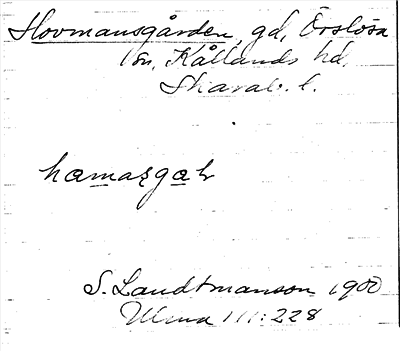 Hovmansgården, gd, Örslösa
sn, Kållands hd,
Skarab. l.
S. Landtmanson 1900
Ulma 111:228